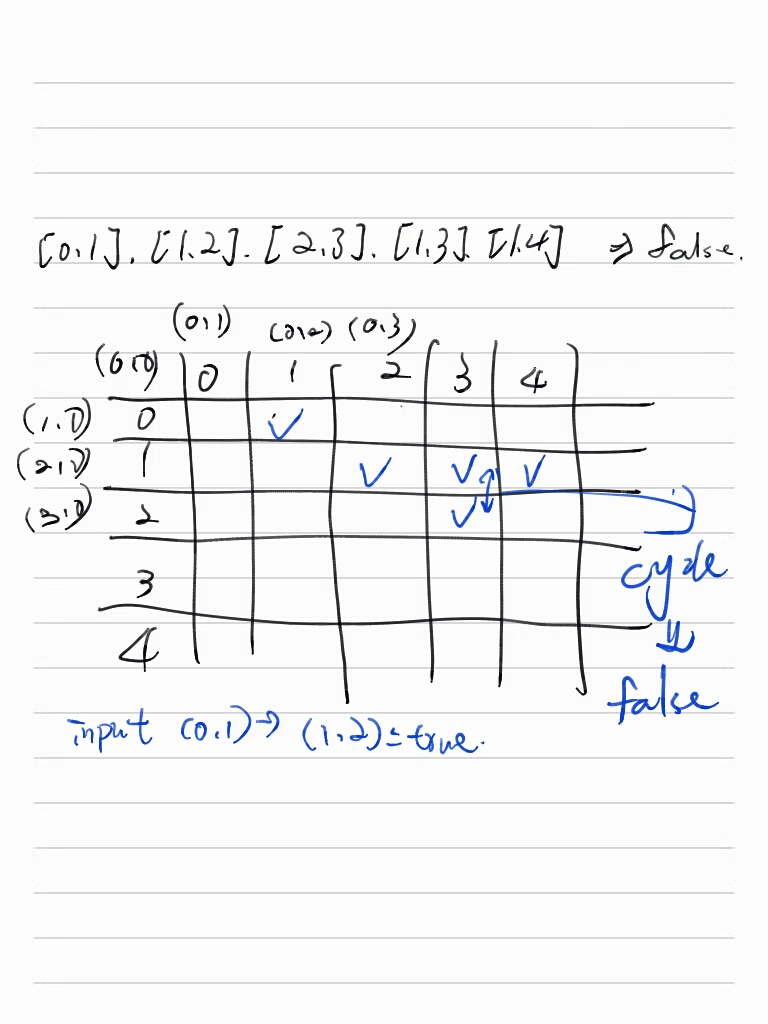 [0,1], [1,2], [2,3], [1,3], [1,4] ⇒ false.
(0,1) (0,2) (0,3)
(0,0) 0 1 2 3 4
(1,0) 0 ✓
(2,0) 1 ✓ ✓ ✓
(3,0) 2 ✓
cycle
3
4
false
input (0,1) → (1,2) = true.